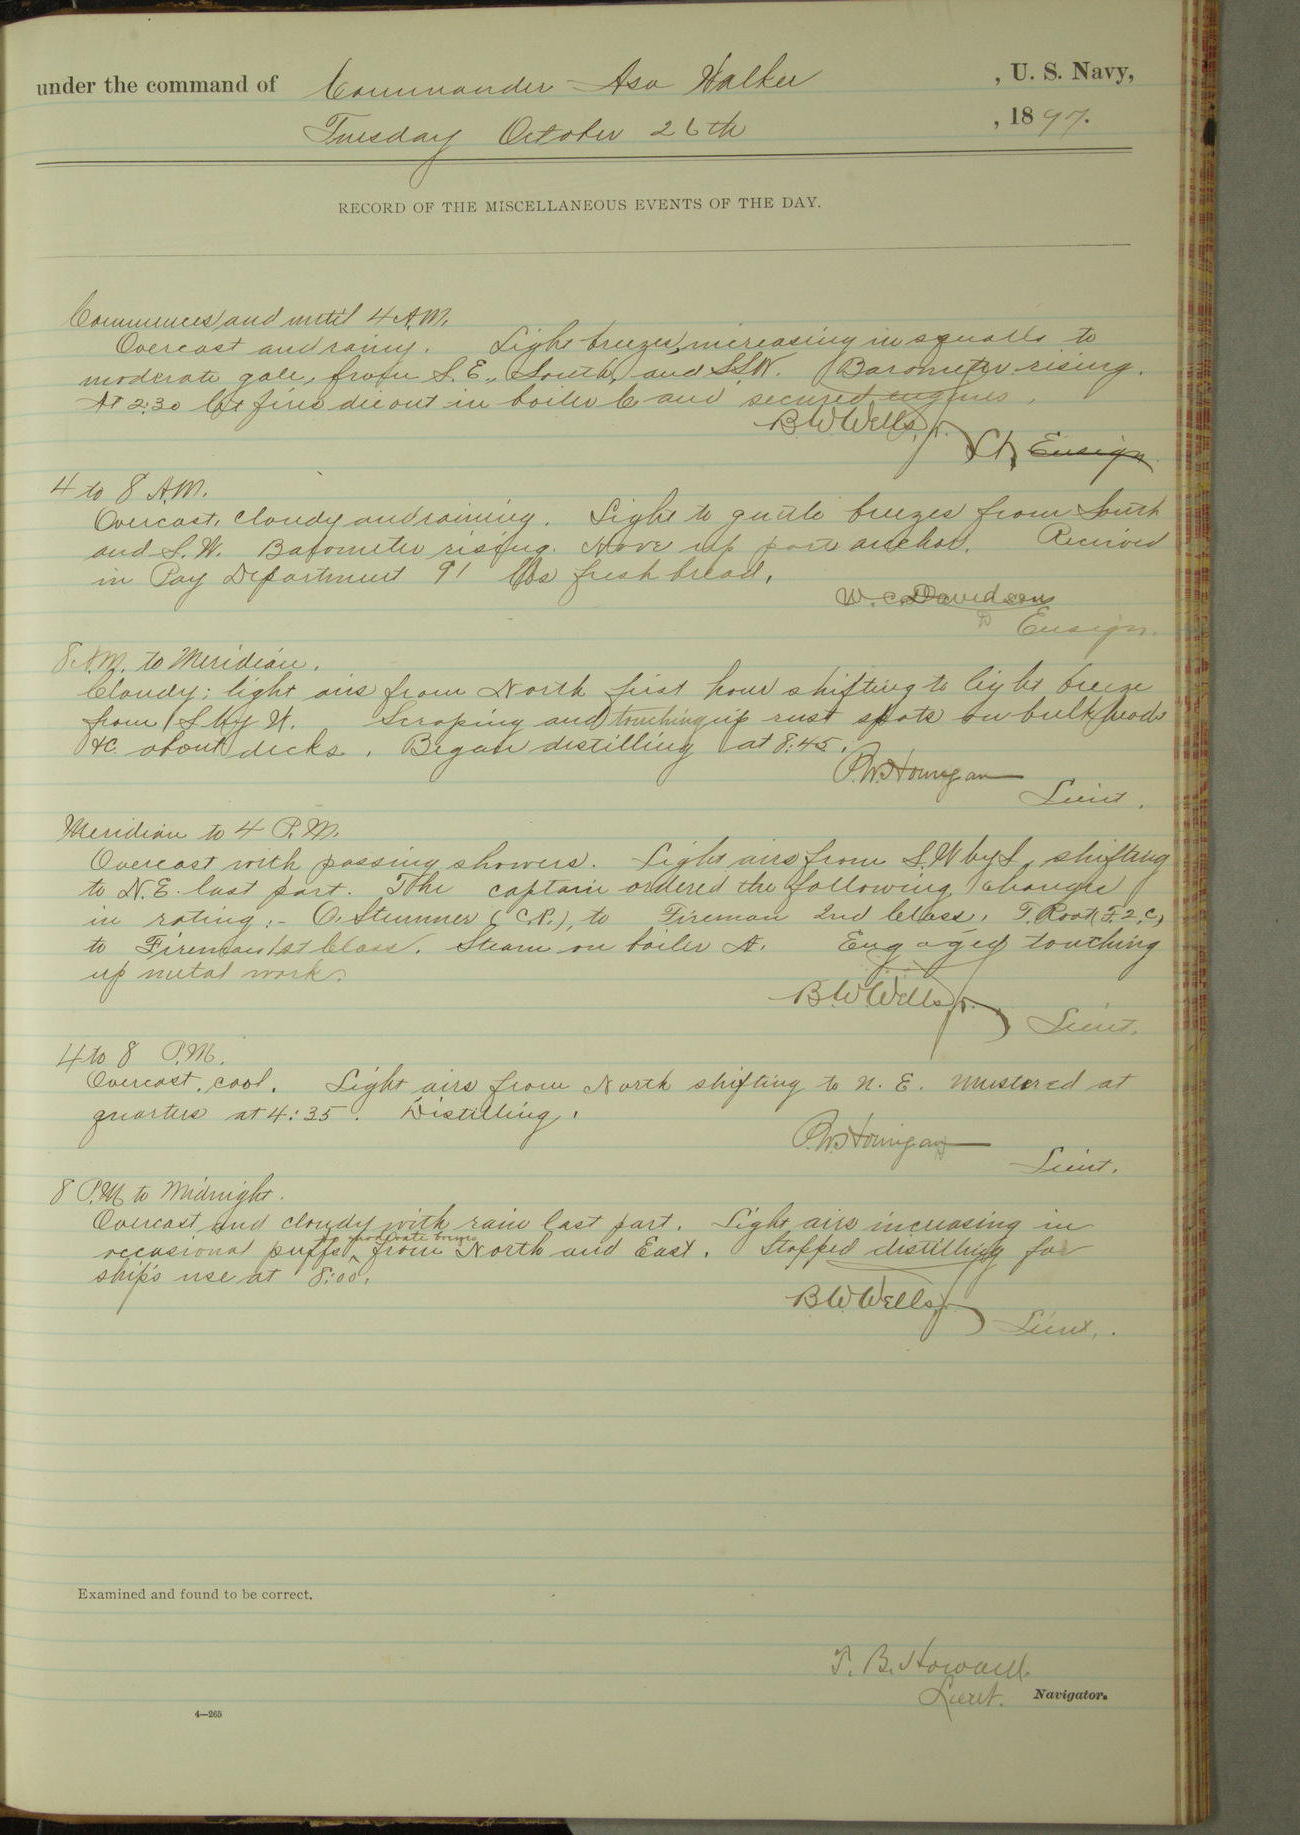 under the command of Commander Asa Walker , U. S. Navy,
Tuesday October 26th , 1897.
RECORD OF THE MISCELLANEOUS EVENTS OF THE DAY.
Commences and until 4 A.M.
Overcast and rainy. Light breezes, increasing in squalls to
moderate gale, from S.E., South, and S.S.W. Barometer rising.
At 2:30 let fires die out in boiler C and secured engines.
B.W. Wells, Jr. Lt. Ensign
4 to 8 A.M.
Overcast, cloudy and raining. Light to gentle breezes from South
and S.W. Barometer rising. Hove up port anchor. Received
in Pay Department 91 lbs fresh bread.
W. C. Davidson
Ensign.
8 A.M. to Meridian.
Cloudy; light airs from North first hour shifting to light breeze
from S. by W. Scraping and touching up rust spots on bulkheads
&c. about decks. Began distilling at 8:45.
P.W. Hourigan
Lieut.
Meridian to 4 P.M.
Overcast with passing showers. Light airs from S.W by S, shifting
to N.E. last part. The captain ordered the following changes
in rating:- O. (C.P.), to Fireman 2nd Class, T. Root (F.2.C)
to Fireman 1st Class. Steam on boiler A. Engaged touching
up metal work.
B.W. Wells, Jr. Lieut.
4 to 8 P.M.
Overcast, cool. Light airs from North shifting to N. E. Mustered at
quarters at 4:35. Distilling.
P.W. Hourigan
Lieut.
8 P.M to Midnight.
Overcast and cloudy with rain last part. Light airs increasing in
occasional puffs to moderate breeze from North and East. Stopped distilling for
ship's use at 8:00.
B.W. Wells, Jr. Lieut.
Examined and found to be correct.
T. B. Howard
Lieut. Navigator.
4—265